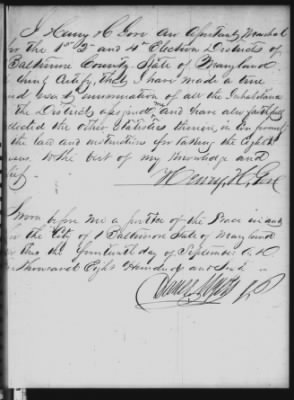 I Henry H Gore An Assistant Marshal
for the 1st 2d and 4th Election Districts of
Baltimore County State of Maryland
Certify, that I have made a true
and exact enumeration of all the Inhabitants
the District assigned me and have also faithfully
collected the other Statistics therein, in conformity
the law and instructions for taking the Eighth
to the best of my Knowledge and
Henry H. Gore
Sworn before me a Justice of the Peace in and
for the City of Baltimore State of Maryland
this the fourteenth day of September A D
Thousand Eight Hundred and
J P